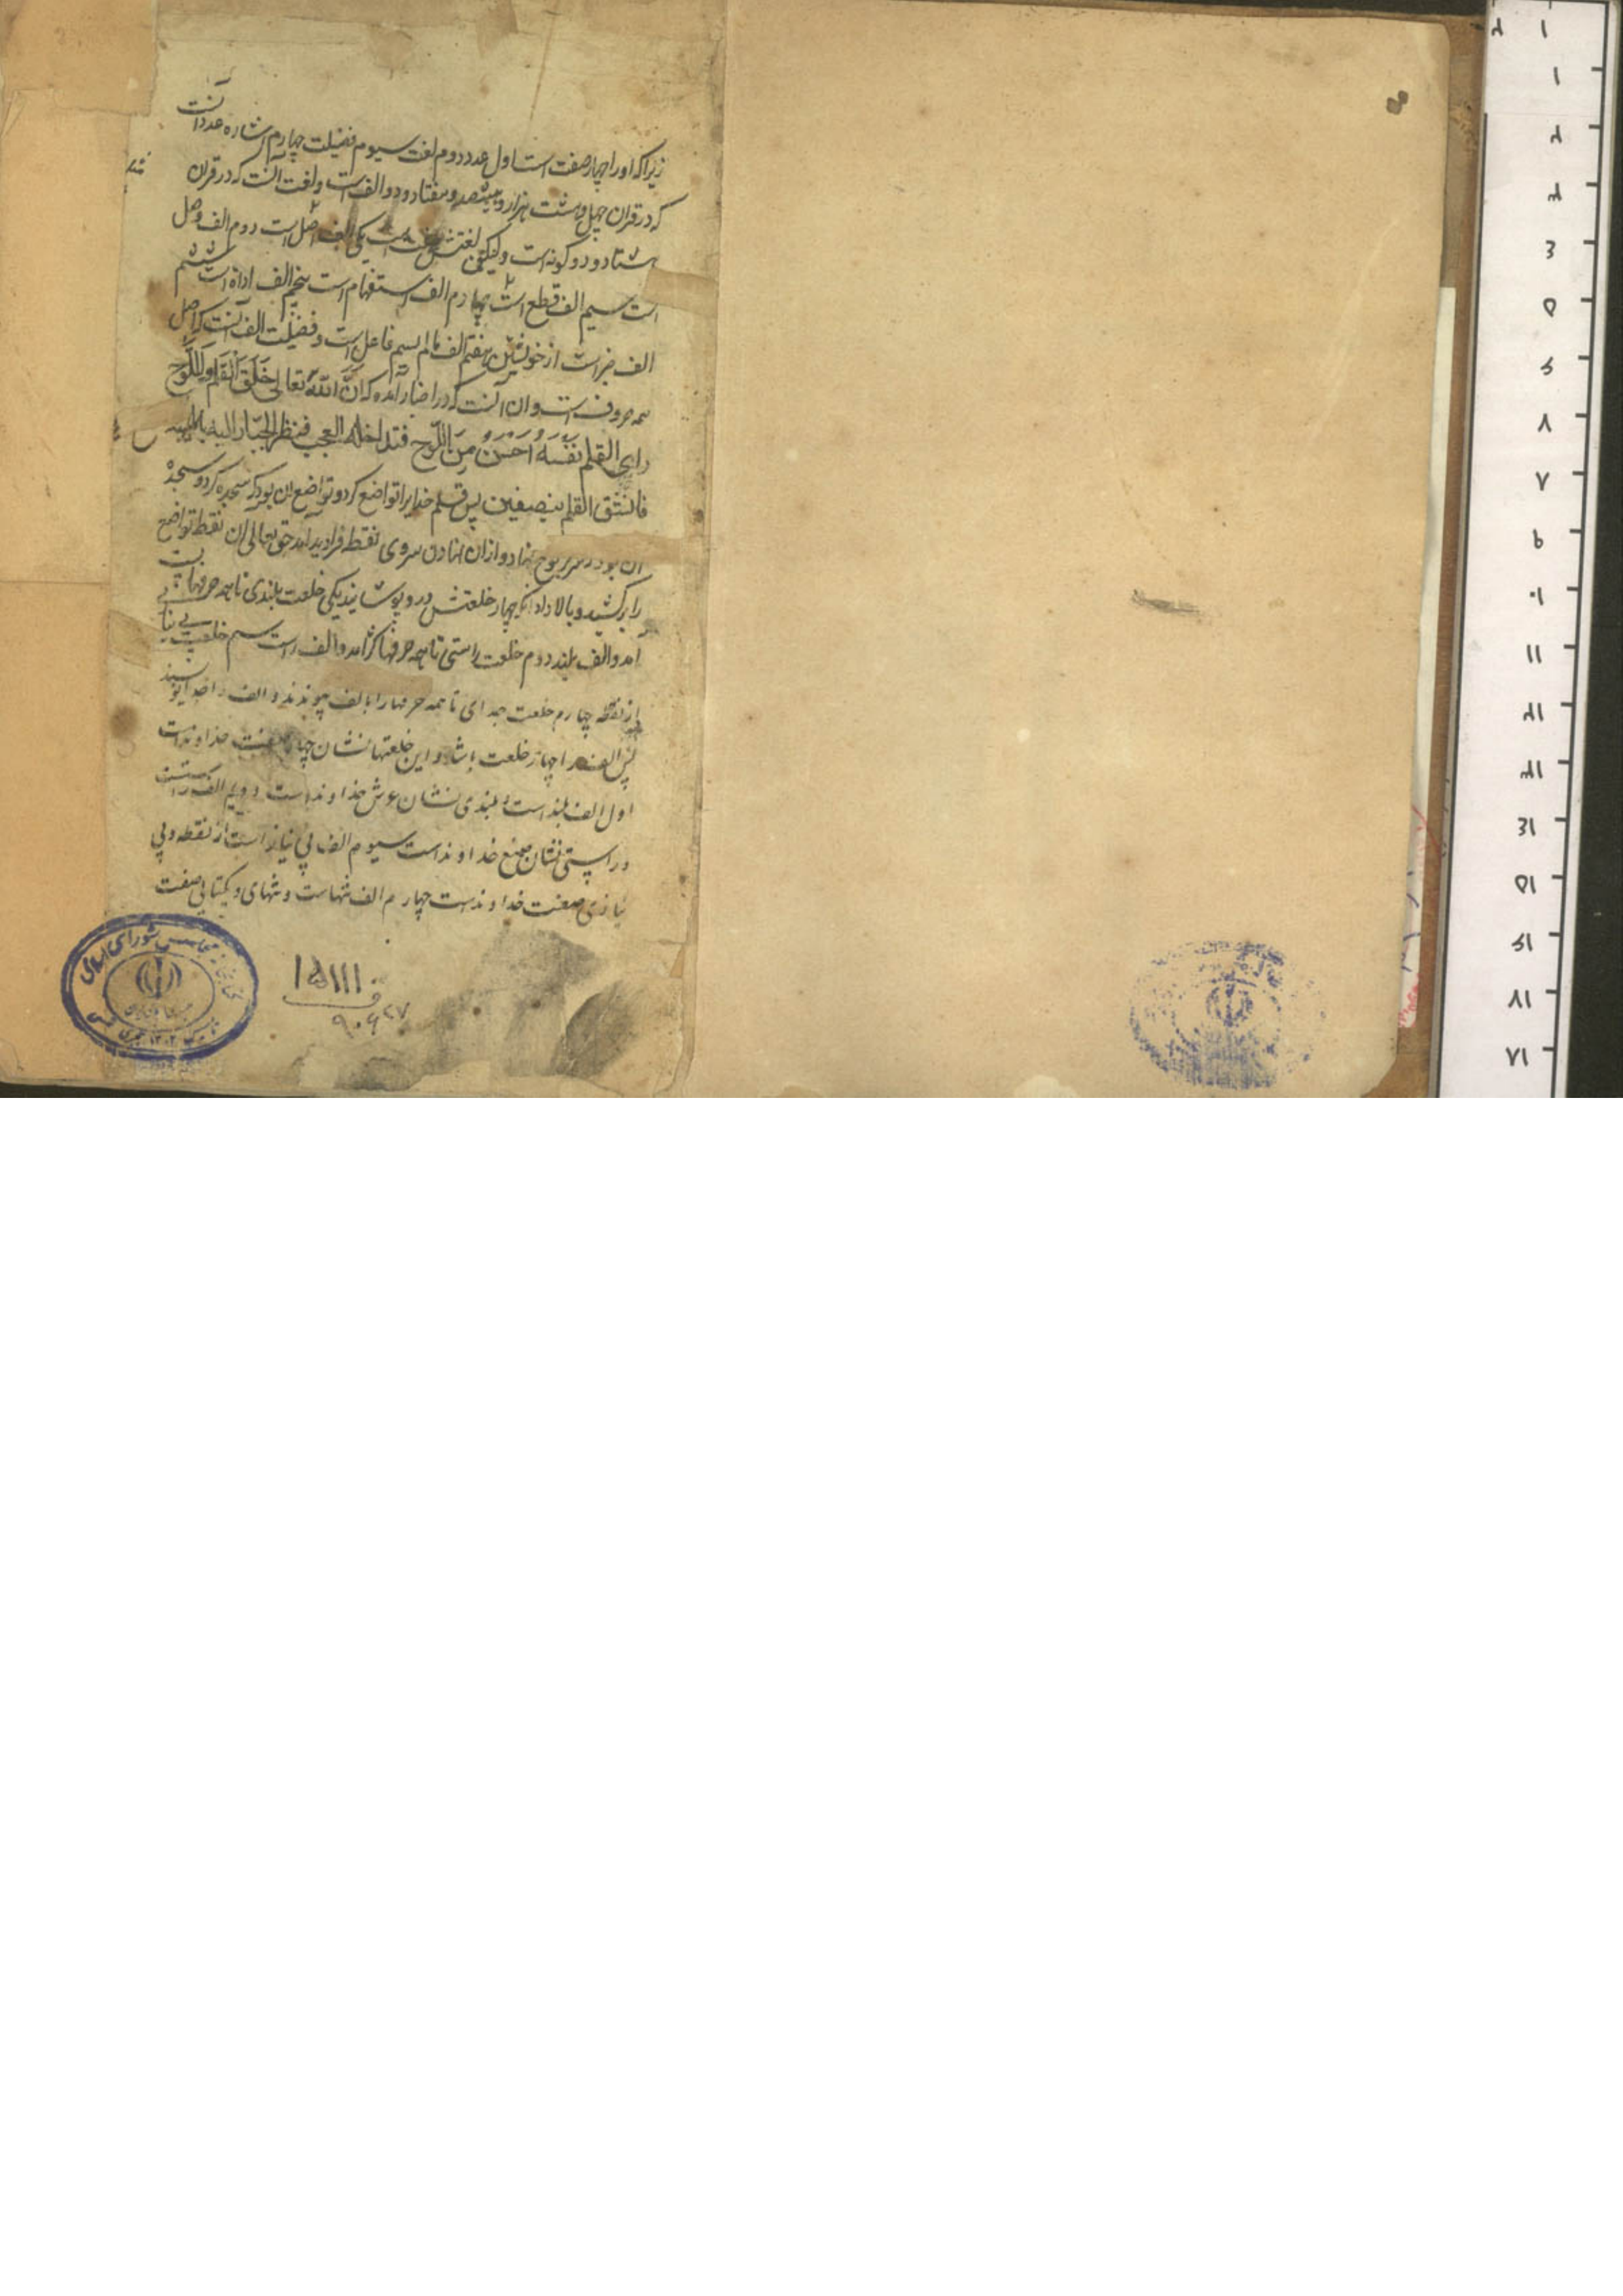 زیرا که او را چهار صفت است اول عدد دوم لغت سیوم فضیلت چهارم اشاره عدد آنست
که در قران چهل و هشت هزار و هشتصد و هفتاد و دو الف است و لغت آنست که در قران
هشتاد و دو کونه است ولیکن لغتش هفت است یکی الف اصل است دوم الف وصل
است سیم الف قطع است چهارم الف استفهام است پنجم الف اداة است ششم
الف خبر است از خویشتن هفتم الف مالم یسم فاعل است و فضیلت الف آنست که اصل
همه حروف است و ان آنست که در اخبار آمده که انّ اللّه تعالی خَلَقَ القَلَم و اللَّوح
رای القلم نَفسَهُ اَحْسَنُ مِنَ اللّوح فتداخله العجب فنظر الجبّار الیه بالهیبه
فانشق القلم بنصفین پس قلم خدایرا تواضع کرد و تواضع ان بود که سجده کرد و سجدهٔ
ان بود سر بر لوح نهاد و از ان نهادن سر وی نقطه فرا دید آمد حق تعالی ان نقطه تواضع
را برکشید و بالا داد انکه چهار خلعتش در و پوشانید یکی خلعت بلندی تا همه حرفها پست
آمد و الف بلند دوم خلعت راستی تا همه حرفها کژ آمد و الف راست سیم خلعت بی نیازی
از نقطه چهارم خلعت جدای تا همه حرفها را با الف پیوندند و الف را جدا نویسند
پس الف را چهار خلعت باشد و این خلعتها نشان چهار صفت خداوند است
اول الف بلند است و بلندی نشان عرش خداوند است دویم الف راست
و راستی نشان صنع خداوند است سیوم الف بی نیاز است از نقطه و بی
نیازی صفت خداوند است چهارم الف تنهاست و تنهای و یکتایی صفت
۱۵۱۱۱
ف
۹۰۶۲۷
کتابخانه مجلس شورای اسلامی
تاسیس ۱۳۰۲ هجری شمسی
۱
۲
۳
۴
۵
۶
۷
۸
۹
۱۰
۱۱
۱۲
۱۳
۱۴
۱۵
۱۶
۱۷
۱۸